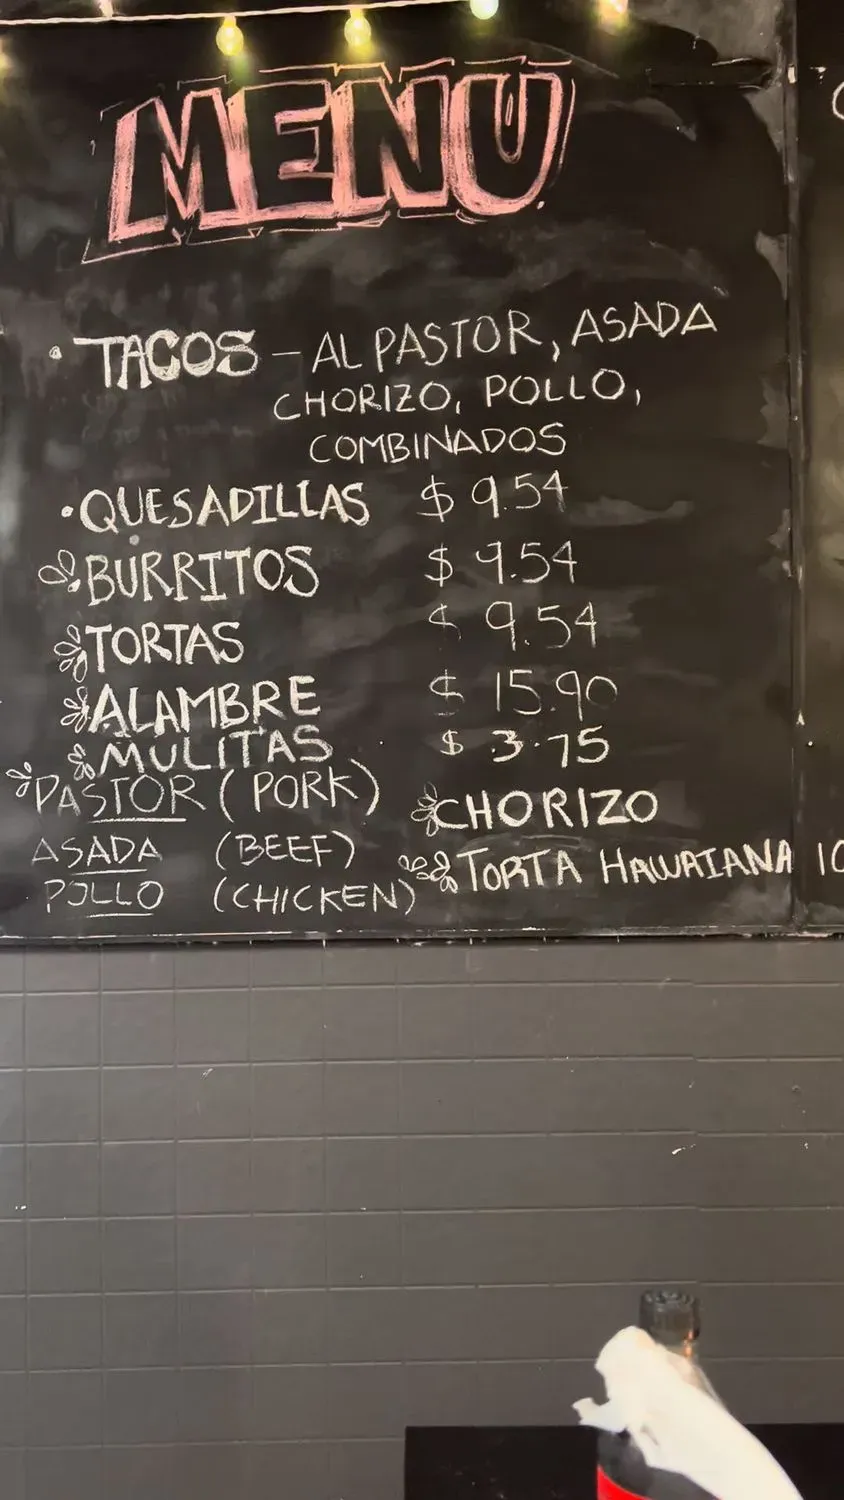 MENU
• TACOS – AL PASTOR, ASADA
CHORIZO, POLLO,
COMBINADOS
• QUESADILLAS $ 9.54
BURRITOS $ 9.54
TORTAS $ 9.54
ALAMBRE $ 15.90
MULITAS $ 3.75
PASTOR (PORK)
CHORIZO
ASADA (BEEF)
TORTA HAWAIANA
POLLO (CHICKEN)